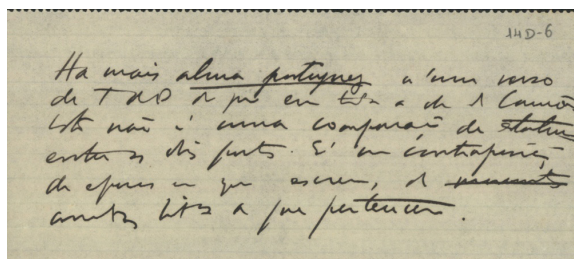 14D-6
Ha mais alma portugueza n'um verso
de T d P do que em toda a de Camões
Isto não é uma comparação de
entre os dois poetas. E' a contraposição
de epocas em que escrevem, de
a que pertencem.